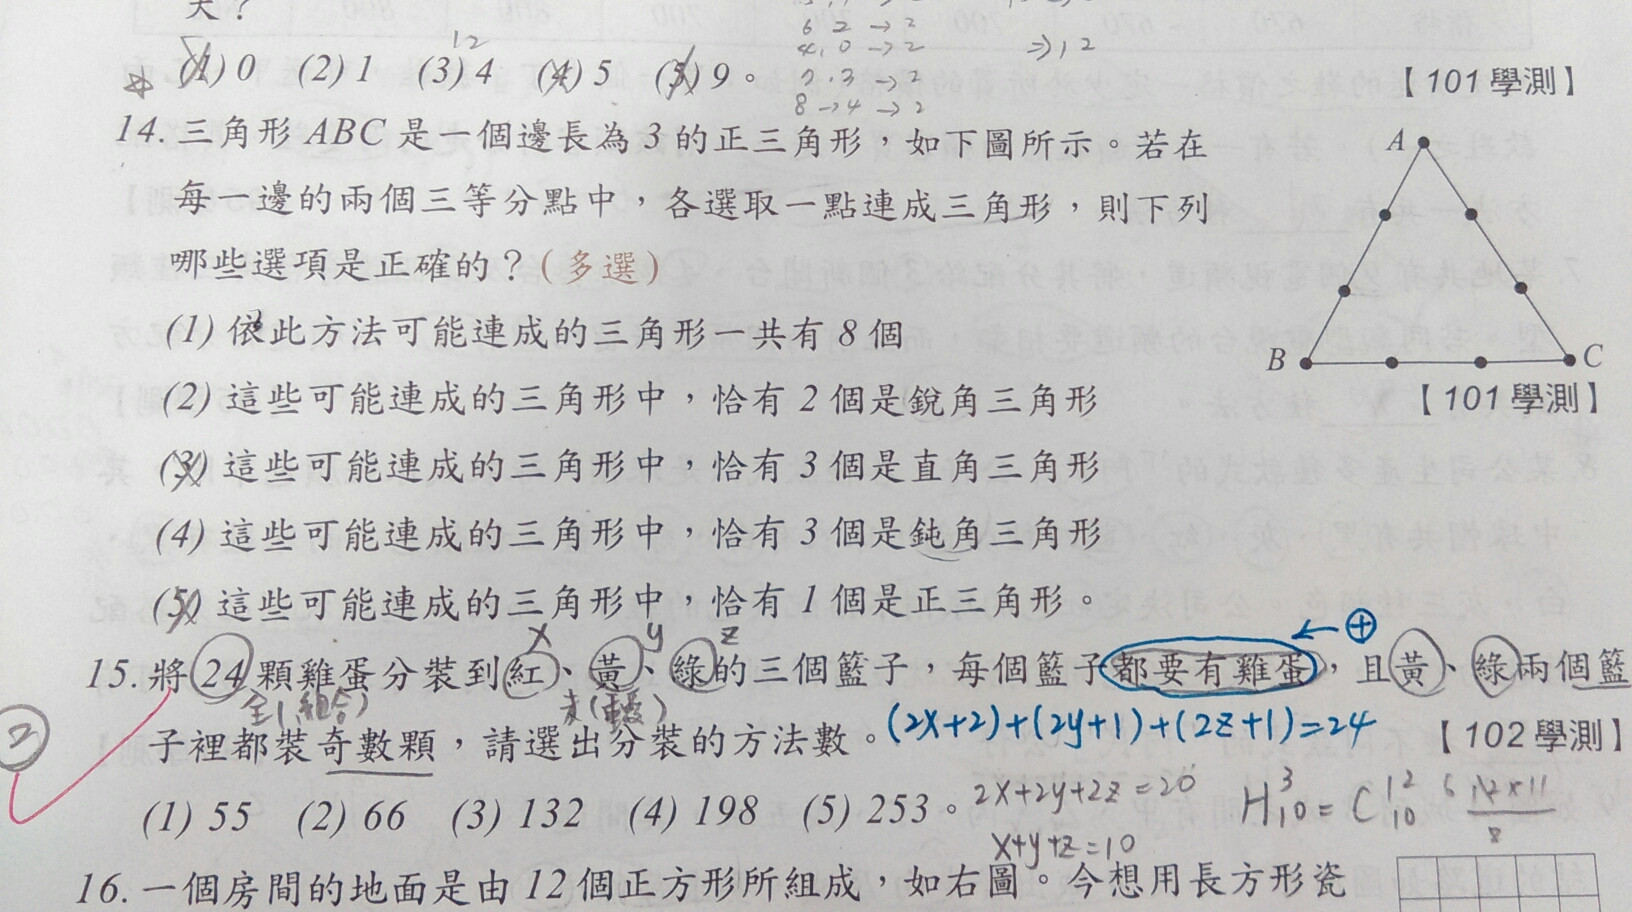 天？
6 2 → 2
4, 0 → 2
⇒ 1, 2
8 → 4 → 2
12
(1) 0 (2) 1 (3) 4 (4) 5 (5) 9。
【101 學測】
14. 三角形 ABC 是一個邊長為 3 的正三角形，如下圖所示。若在
每一邊的兩個三等分點中，各選取一點連成三角形，則下列
哪些選項是正確的？(多選)
(1) 依此方法可能連成的三角形一共有 8 個
(2) 這些可能連成的三角形中，恰有 2 個是銳角三角形
(3) 這些可能連成的三角形中，恰有 3 個是直角三角形
(4) 這些可能連成的三角形中，恰有 3 個是鈍角三角形
(5) 這些可能連成的三角形中，恰有 1 個是正三角形。
A
B
C
【101 學測】
x y z
← ⊕
15. 將 24 顆雞蛋分裝到紅、黃、綠的三個籃子，每個籃子都要有雞蛋，且黃、綠兩個籃
2
子裡都裝奇數顆，請選出分裝的方法數。
(2x+2)+(2y+1)+(2z+1)=24
【102 學測】
(1) 55 (2) 66 (3) 132 (4) 198 (5) 253。
2x+2y+2z=20
x+y+z=10
H³₁₀ = C¹²₁₀
6 12×11
16. 一個房間的地面是由 12 個正方形所組成，如右圖。今想用長方形瓷